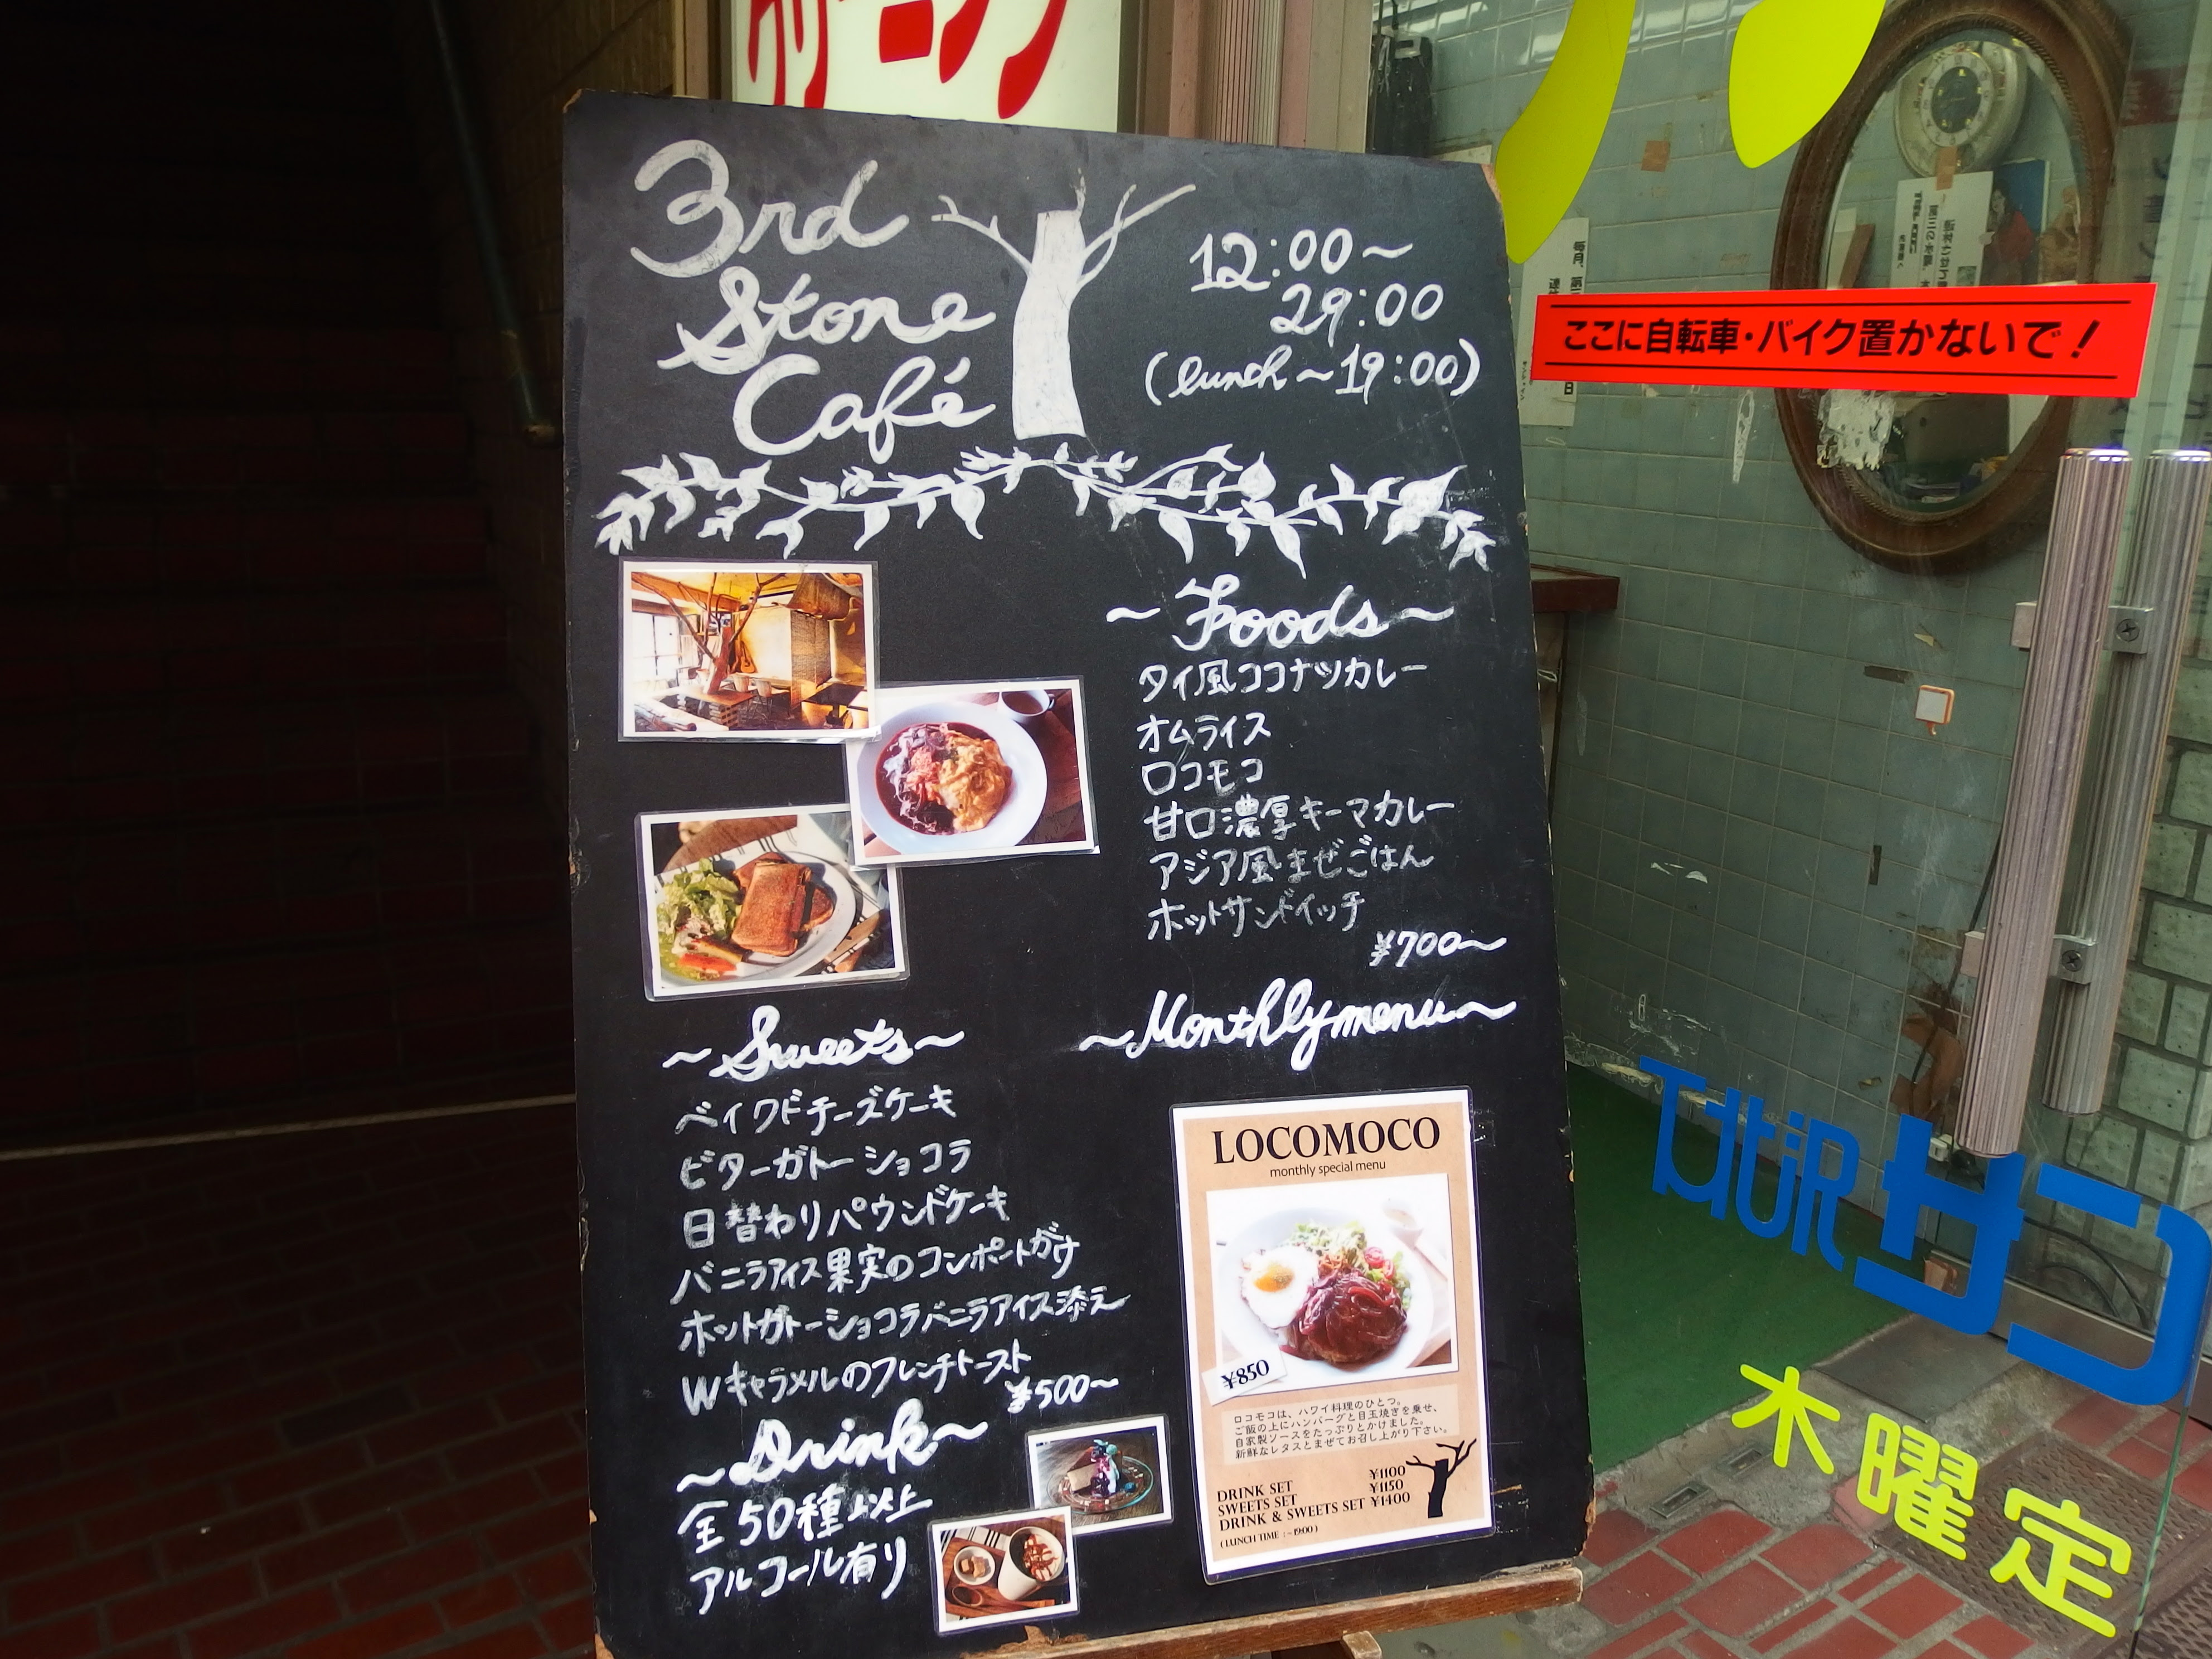 クリーニング
3rd
Stone
Café
12:00～
29:00
(lunch～19:00)
～Foods～
タイ風ココナツカレー
オムライス
ロコモコ
甘口濃厚キーマカレー
アジア風まぜごはん
ホットサンドイッチ
¥700～
～Sweets～
ベイクドチーズケーキ
ビターガトーショコラ
日替わりパウンドケーキ
バニラアイス果実のコンポートがけ
ホットガトーショコラバニラアイス添え
Wキャラメルのフレンチトースト
¥500～
～Drink～
全50種以上
アルコール有り
～Monthly menu～
LOCOMOCO
monthly special menu
¥850
ロコモコは、ハワイ料理のひとつ。
ご飯の上にハンバーグと目玉焼きを乗せ、
自家製ソースをたっぷりとかけました。
新鮮なレタスとまぜてお召し上がり下さい。
DRINK SET ¥1100
SWEETS SET ¥1150
DRINK & SWEETS SET ¥1400
(LUNCH TIME : ~19:00)
ここに自転車・バイク置かないで！
木曜定